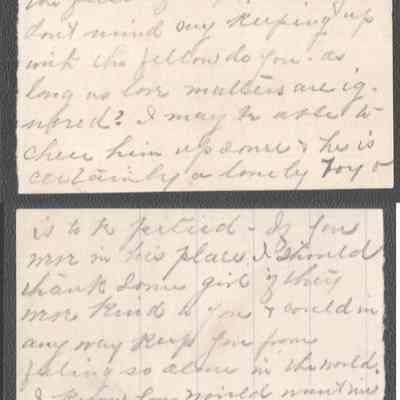 don't mind my keeping up
with the fellow do you. as
long as love matters are ig-
nored? I may be able to
cheer him up some & he is
certainly a lonely boy &
is to be pitied - If you
were in his place I should
thank some girl if they
were kind to you & could in
any way keep you from
feeling so alone in the world.
I know you would want me